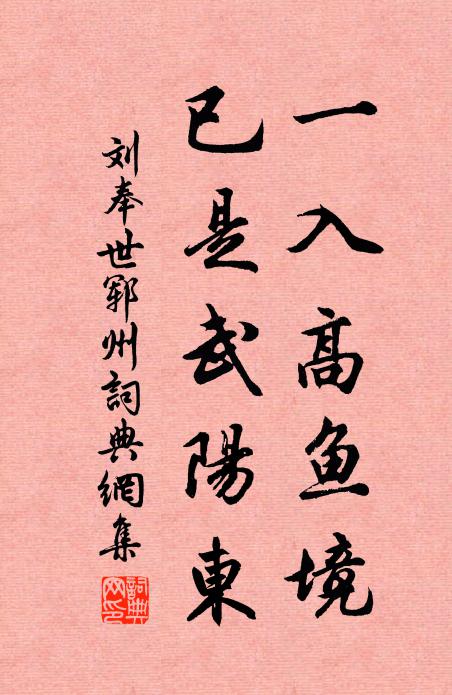 一入高鱼境
已是武陽東
刘奉世郓州詞典網集
詞典網印